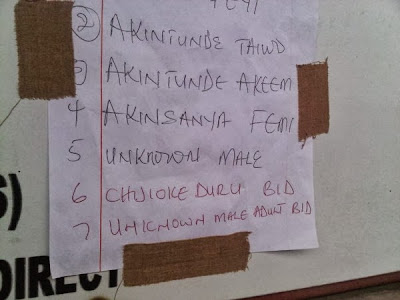 2 AKINTUNDE TAIWO
3 AKINTUNDE AKEEM
4 AKINSANYA FEMI
5 UNKNOWN MALE
6 CHIJIOKE DURU BID
7 UNKNOWN MALE ADULT BID
S)
DIRECT